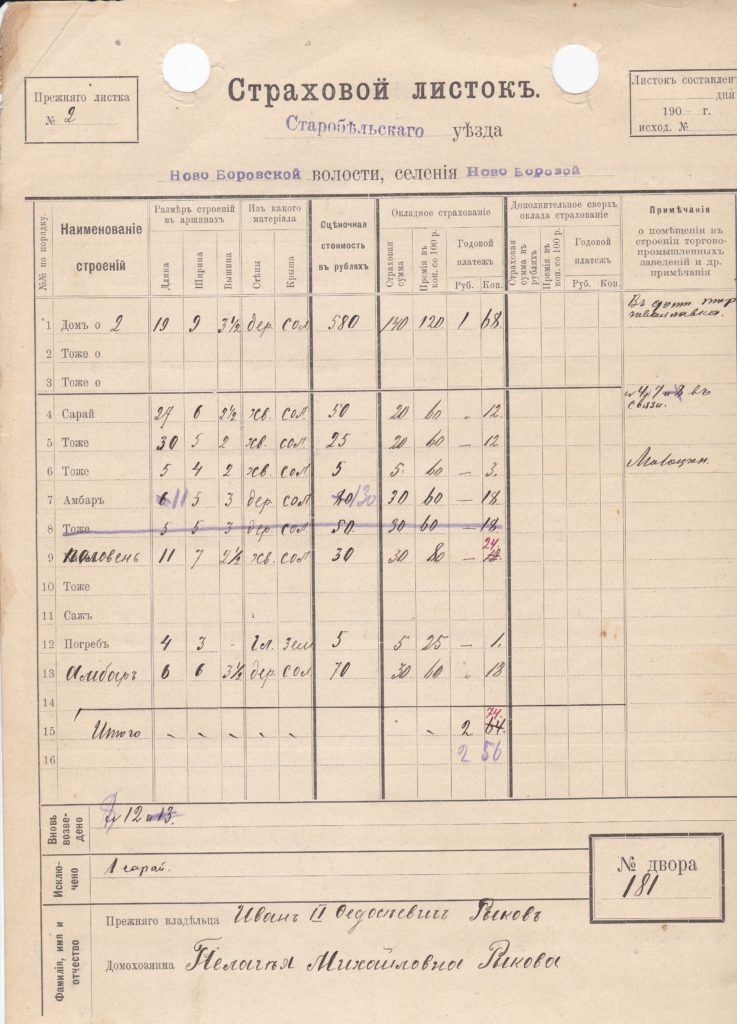 Прежняго листка
№ 2
Страховой листокъ.
Старобѣльскаго уѣзда
Листокъ составленъ
дня
190 – г.
исход. №
Ново Боровской волости, селенія Ново Боровой
№№ по порядку.
Наименованіе строеній
Размѣръ строеній въ аршинахъ
Длина
Ширина
Вышина
Изъ какого матеріала
Стѣны
Крыша
Оцѣночная стоимость въ рубляхъ
Окладное страхованіе
Страховая сумма
Премія въ коп. со 100 р.
Годовой платежъ
Руб. Коп.
Дополнительное сверхъ оклада страхованіе
Страховая сумма въ рубляхъ
Премія въ коп. со 100 р.
Годовой платежъ
Руб. Коп.
Примѣчанія
о помѣщеніи въ строеніи торгово-промышленныхъ заведеній и др. примѣчанія
1 Домъ о 2 19 9 3½ дер. сол 580 140 120 1 68
Въ домѣ лавка.
2 Тоже о
3 Тоже о
4 Сарай 27 6 2½ хв. сол 50 20 60 „ 12
4, 7 въ связи.
5 Тоже 30 5 2 хв. сол. 25 20 60 — 12
6 Тоже 5 4 2 хв. сол 5 5 60 — 3.
7 Амбаръ 6 11 5 3 дер. сол 130 30 60 — 18
8 Тоже 5 5 3 дер. сол 50 30 60 — 18
9 Половень 11 7 2½ хв. сол 30 30 80 — 24 18
10 Тоже
11 Сажъ
12 Погребъ 4 3 - гл. зем 5 5 25 — 1.
13 Амбаръ 6 6 3½ дер. сол. 70 30 60 „ 18
14
15 Итого 2 74. 64.
16 2 56
Вновь возве-дено
№ 12 и 13.
Исклю-чено
1 сарай.
№ двора
181
Фамилія, имя и отчество
Прежняго владѣльца Иванъ II Ѳедосѣевичъ Рыковъ
Домохозяина Пелагѣя Михайловна Рыкова